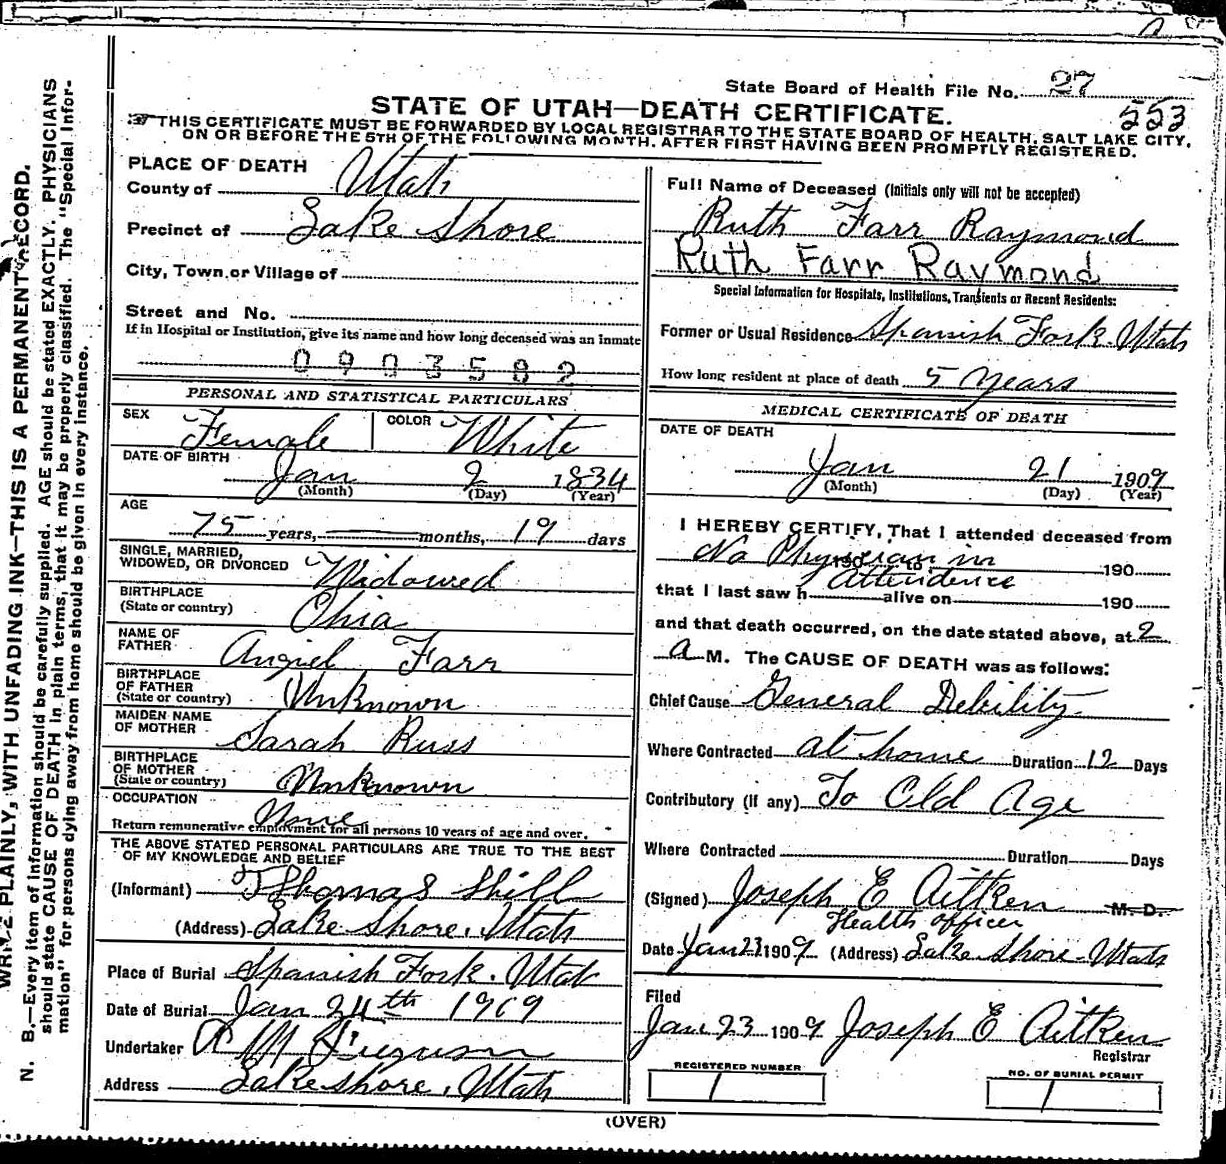 State Board of Health File No. 27
553
STATE OF UTAH—DEATH CERTIFICATE.
THIS CERTIFICATE MUST BE FORWARDED BY LOCAL REGISTRAR TO THE STATE BOARD OF HEALTH, SALT LAKE CITY,
ON OR BEFORE THE 5TH OF THE FOLLOWING MONTH, AFTER FIRST HAVING BEEN PROMPTLY REGISTERED.
PLACE OF DEATH
County of Utah
Precinct of Lake Shore
City, Town or Village of
Street and No.
If in Hospital or Institution, give its name and how long deceased was an inmate
0903582
PERSONAL AND STATISTICAL PARTICULARS
SEX Female COLOR White
DATE OF BIRTH Jan 2 1834
(Month) (Day) (Year)
AGE
75 years, months, 19 days
SINGLE, MARRIED,
WIDOWED, OR DIVORCED Widowed
BIRTHPLACE
(State or country) Ohio
NAME OF
FATHER Angiel Farr
BIRTHPLACE
OF FATHER
(State or country) Unknown
MAIDEN NAME
OF MOTHER Sarah Russ
BIRTHPLACE
OF MOTHER
(State or country) Unknown
OCCUPATION None
Return remunerative employment for all persons 10 years of age and over.
THE ABOVE STATED PERSONAL PARTICULARS ARE TRUE TO THE BEST
OF MY KNOWLEDGE AND BELIEF
(Informant) Thomas Shill
(Address) Lake Shore. Utah
Place of Burial Spanish Fork. Utah
Date of Burial Jan 24th 1909
Undertaker A M Ferguson
Address Lake shore. Utah
Full Name of Deceased (Initials only will not be accepted)
Ruth Farr Raymond
Ruth Farr Raymond
Special Information for Hospitals, Institutions, Transients or Recent Residents:
Former or Usual Residence Spanish Fork. Utah
How long resident at place of death 5 Years
MEDICAL CERTIFICATE OF DEATH
DATE OF DEATH
Jan 21 1909
(Month) (Day) (Year)
I HEREBY CERTIFY, That I attended deceased from
No Physician in 190
Attendence
that I last saw h alive on 190
and that death occurred, on the date stated above, at 2
A M. The CAUSE OF DEATH was as follows:
Chief Cause General Debility
Where Contracted at home Duration 12 Days
Contributory (if any) To Old Age
Where Contracted Duration Days
(Signed) Joseph E Aitken M. D.
Health officer
Date Jan 23 1909 (Address) Lake Shore Utah
Filed
Jan 23 1909 Joseph E Aitken
Registrar
REGISTERED NUMBER
1
NO. OF BURIAL PERMIT
1
(OVER)
PLAINLY, WITH UNFADING INK—THIS IS A PERMANENT RECORD.
N. B.—Every item of information should be carefully supplied. AGE should be stated EXACTLY. PHYSICIANS
should state CAUSE OF DEATH in plain terms, that it may be properly classified. The "Special Infor-
mation" for persons dying away from home should be given in every instance.